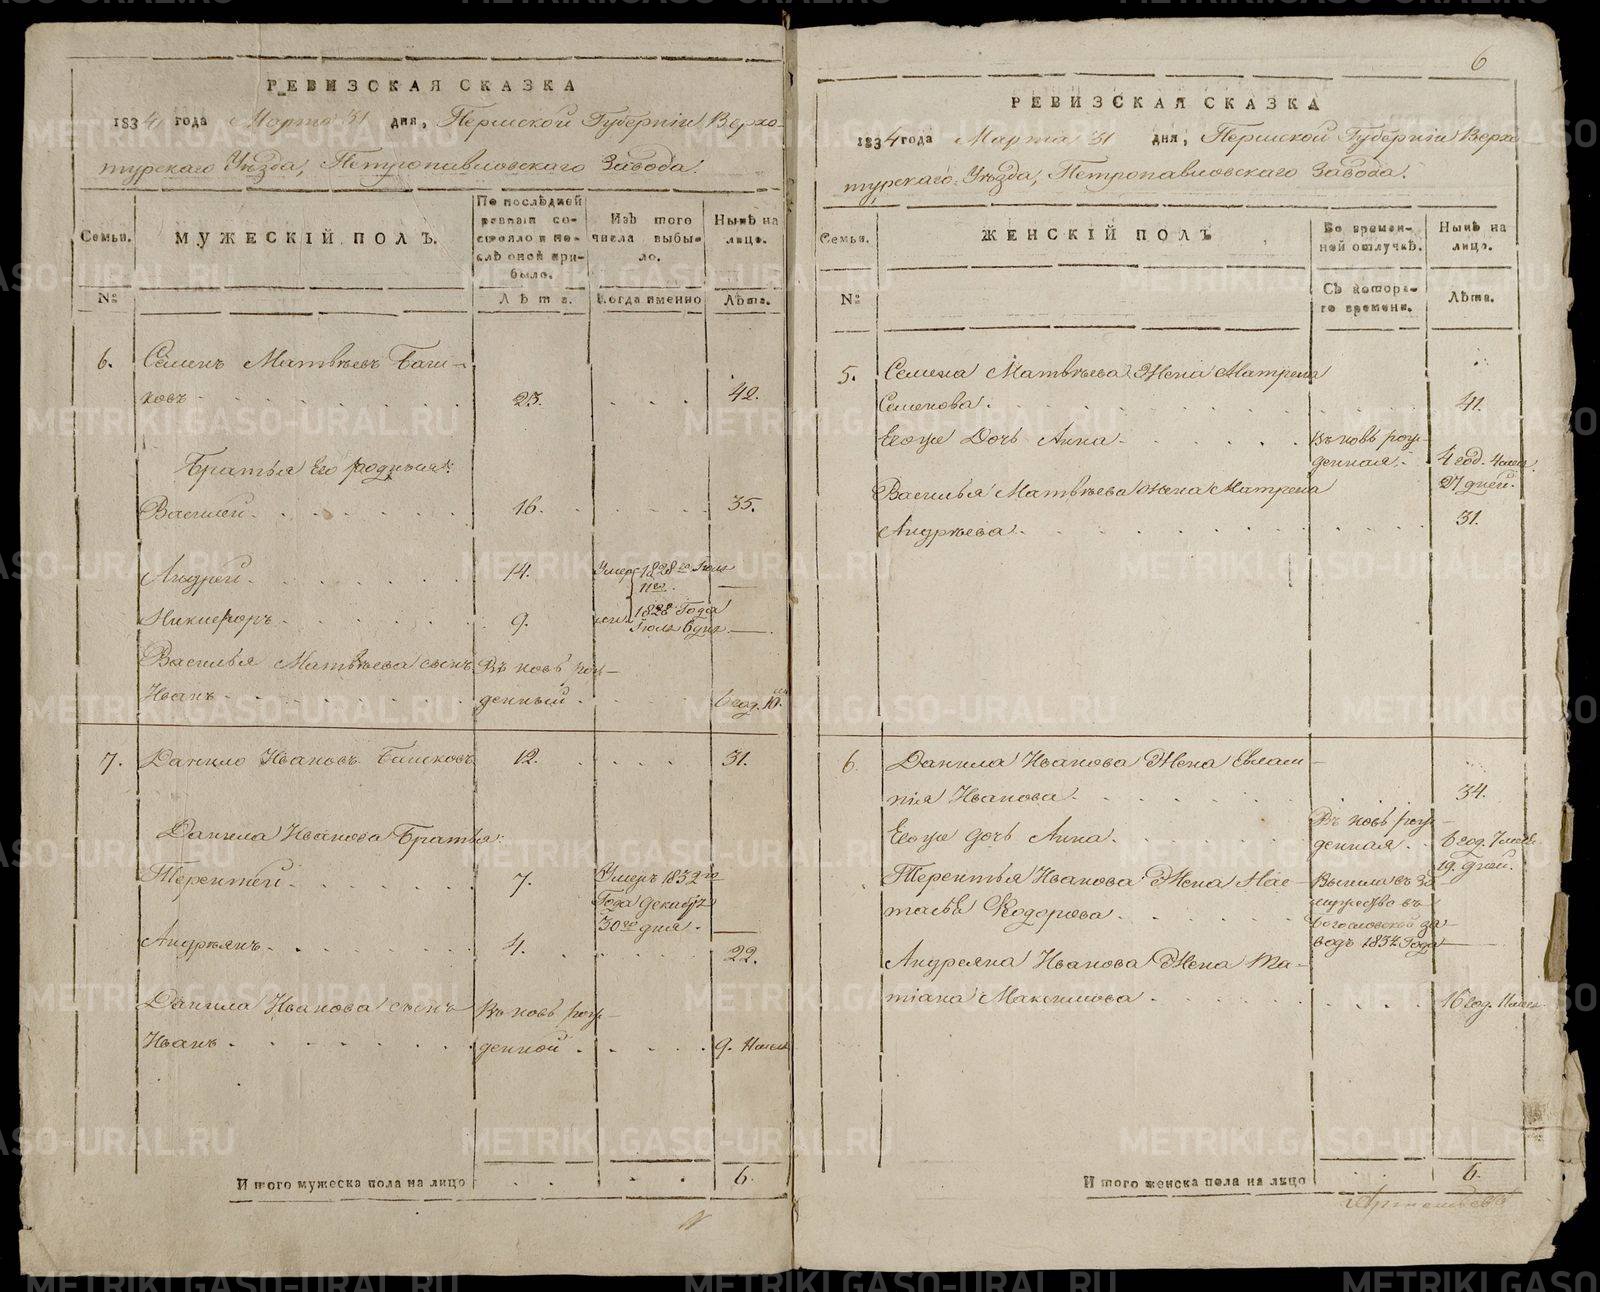 РЕВИЗСКАЯ СКАЗКА
1834 года Марта 31 дня, Пермской Губернiи Верхо-
турскаго Уѣзда, Петропавловскаго Завода.
Семьи.
МУЖЕСКIЙ ПОЛЪ.
По послѣдней ревизiи состояло и послѣ оной прибыло.
Изъ того числа выбыло.
Нынѣ на лицо.
№
Лѣта.
Когда именно
Лѣта.
6. Семенъ Матвѣевъ
ковъ 23. 42.
Братья Его родныя:
Василей 16. 35.
Андрей 14. Умер 1828го Iюля
Никифоръ 9. 1828 Года
Iюля
Василья Матвѣева сынъ Въ новѣ рож-
Иванъ денный 6 год. 10.
7. Данило Ивановъ 12. 31.
Данила Иванова Братья:
Терентей 7. Умеръ 1832го
Года Декабря
30го дня.
Андреянъ 4. 22.
Данила Иванова сынъ Въ новѣ рож-
Иванъ денной 9.
Итого мужеска пола на лицо 6.
6
РЕВИЗСКАЯ СКАЗКА
1834 года Марта 31 дня, Пермской Губернiи Верхо
турскаго Уѣзда, Петропавловскаго Завода.
Семьи.
ЖЕНСКIЙ ПОЛЪ
Во временной отлучкѣ.
Нынѣ на лицо.
№
Съ котораго времени.
Лѣта.
5. Семена Матвѣева Жена Матрена
Семенова. 41.
Егоже Дочь Анна Въ новѣ рож-
денная. 4 год. 4 мес.
27 дней.
Василья Матвѣева жена Матрена
Андрѣева. 31.
6. Данила Иванова Жена Евлам-
пiя Иванова. 34.
Егоже дочь Анна. Въ новѣ рож-
денная. 6 год. 7 мес.
19. дней.
Терентья Иванова Жена Нас- Вышла въ за-
тасья Федорова. мужество въ
Богословской за-
водъ 1832 Года
Андреяна Иванова Жена Та-
тiана Максимова 16 год. 11 мес.
Итого женска пола на лицо 6.
METRIKI.GASO-URAL.RU